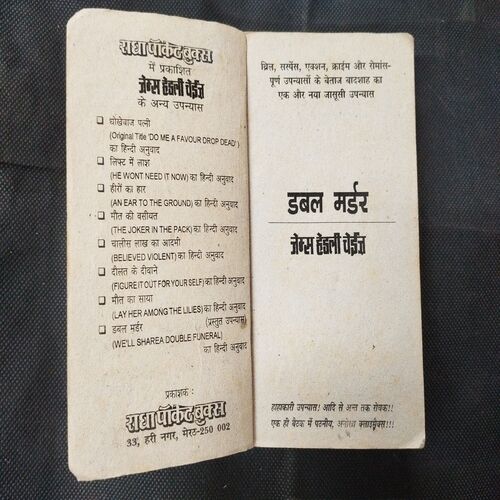 राधा पॉकेट बुक्स
में प्रकाशित
जेम्स हेडली चेईज
के अन्य उपन्यास
❑ धोखेबाज पत्नी
(Original Title 'DO ME A FAVOUR DROP DEAD')
का हिन्दी अनुवाद
❑ लिफ्ट में लाश
(HE WONT NEED IT NOW) का हिन्दी अनुवाद
❑ हीरों का हार
(AN EAR TO THE GROUND) का हिन्दी अनुवाद
❑ मौत की वसीयत
(THE JOKER IN THE PACK) का हिन्दी अनुवाद
❑ चालीस लाख का आदमी
(BELIEVED VIOLENT) का हिन्दी अनुवाद
❑ दौलत के दीवाने
(FIGURE IT OUT FOR YOURSELF) का हिन्दी अनुवाद
❑ मौत का साया
(LAY HER AMONG THE LILIES) का हिन्दी अनुवाद
❑ डबल मर्डर (प्रस्तुत उपन्यास)
(WE'LL SHAREA DOUBLE FUNERAL)
का हिन्दी अनुवाद
प्रकाशक :
राधा पॉकेट बुक्स
33, हरी नगर, मेरठ-250 002
थ्रिल, सस्पेंस, एक्शन, क्राईम और रोमांस-
पूर्ण उपन्यासों के बेताज बादशाह का
एक और नया जासूसी उपन्यास
डबल मर्डर
जेम्स हेडली चेईज
हाहाकारी उपन्यास! आदि से अन्त तक रोचक!!
एक ही बैठक में पठनीय, अनोखा क्लाईमैक्स!!!